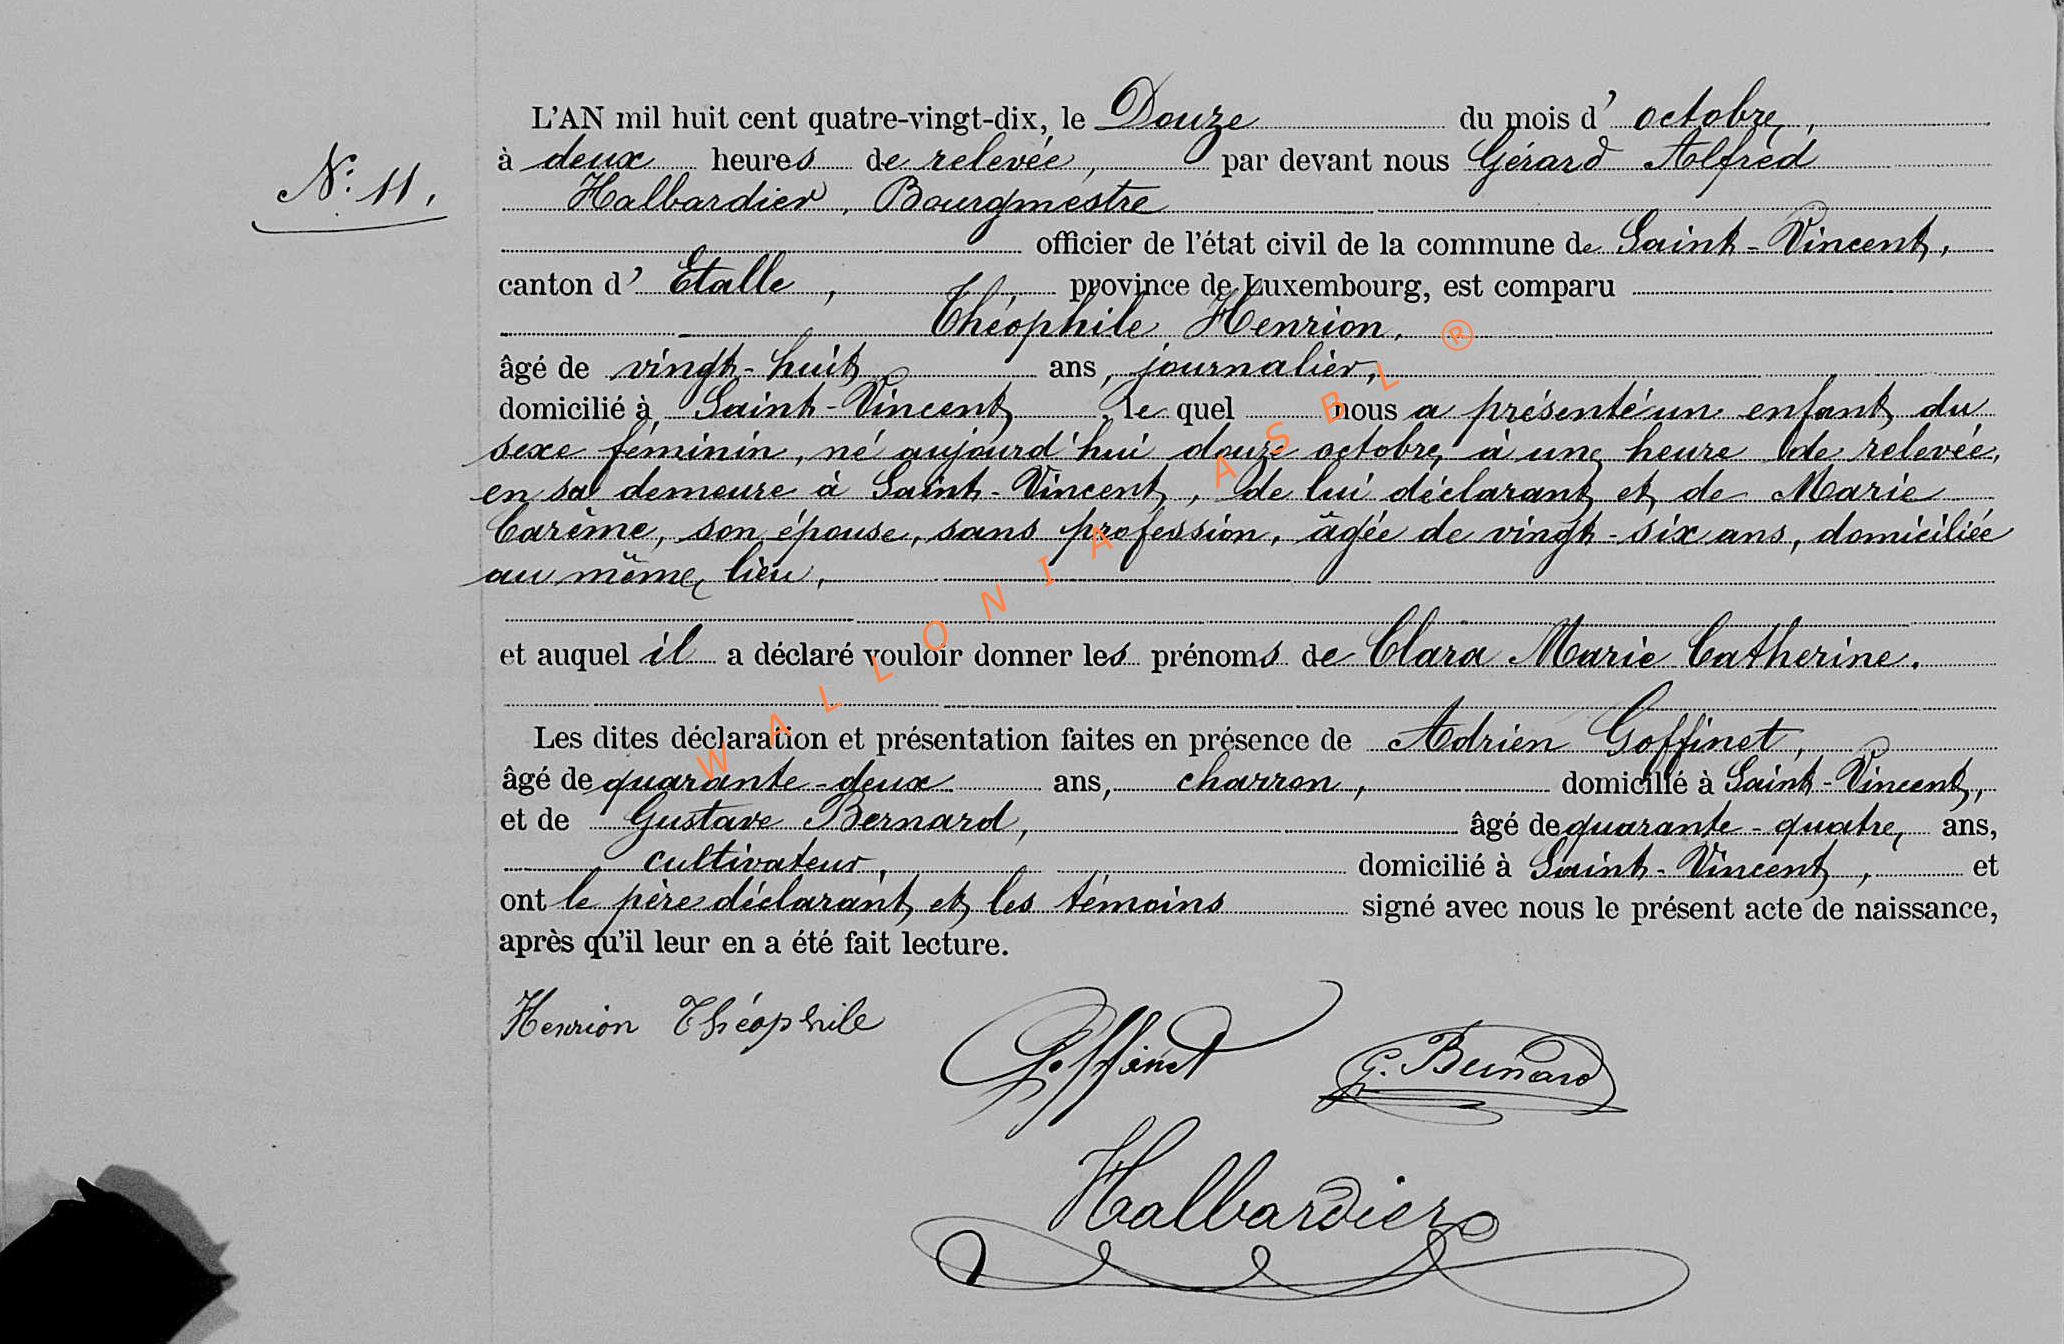 L'AN mil huit cent quatre-vingt-dix, le Douze du mois d' octobre,
N.° 11,
à deux heures de relevée, par devant nous Gérard Alfred
Halbardier, Bourgmestre
officier de l'état civil de la commune de Saint-Vincent,
canton d' Etalle, province de Luxembourg, est comparu
Théophile Henrion,
âgé de vingt-huit ans, journalier,
domicilié à Saint-Vincent, le quel nous a présenté un enfant du
sexe féminin, né aujourd'hui douze octobre, à une heure de relevée,
en sa demeure à Saint-Vincent, de lui déclarant et de Marie
Carème, son épouse, sans profession, âgée de vingt-six ans, domiciliée
au même lieu,
et auquel il a déclaré vouloir donner les prénoms de Clara Marie Catherine.
Les dites déclaration et présentation faites en présence de Adrien Goffinet,
âgé de quarante-deux ans, charron, domicilié à Saint-Vincent,
et de Gustave Bernard, âgé de quarante-quatre, ans,
cultivateur, domicilié à Saint-Vincent, et
ont le père déclarant et les témoins signé avec nous le présent acte de naissance,
après qu'il leur en a été fait lecture.
Henrion Théophile
Goffinet
G. Bernard
Halbardier
WALLONIA ASBL ®